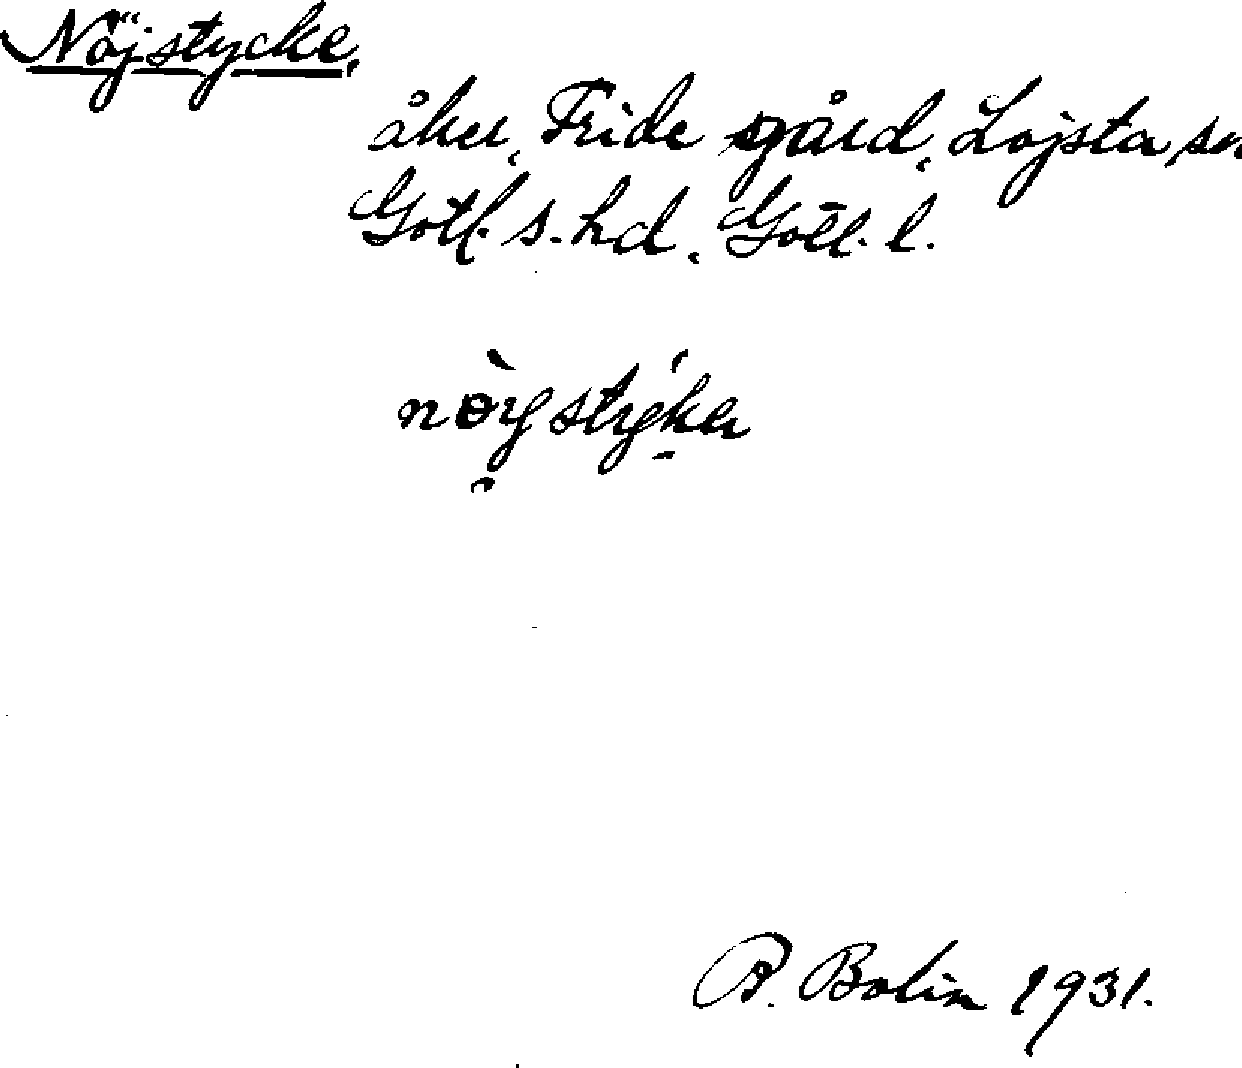 Nöjstycke,
åker, Fride gård, Lojsta sn
Gotl. s. hd, Gotl. l.
A. Bolin 1931.